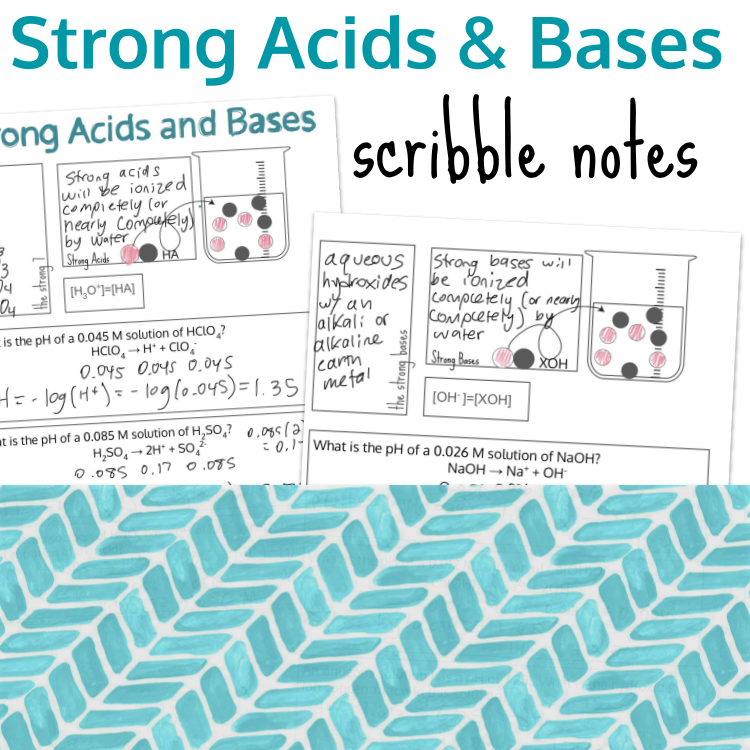 Strong Acids & Bases
scribble notes
ong Acids and Bases
Strong acids
will be ionized
completely (or
nearly completely)
by water
Strong Acids
HA
the strong 7
[H₃O⁺]=[HA]
is the pH of a 0.045 M solution of HClO₄?
HClO₄ → H⁺ + ClO₄⁻
0.045 0.045 0.045
H = - log(H⁺) = - log(0.045) = 1.35
t is the pH of a 0.085 M solution of H₂SO₄?
0.085(2
= 0.1
H₂SO₄ → 2H⁺ + SO₄²⁻
0.085 0.17 0.085
aqueous
hydroxides
w/ an
alkali or
alkaline
earth
metal
the strong bases
Strong bases will
be ionized
completely (or nearly
completely) by
water
Strong Bases
XOH
[OH⁻]=[XOH]
What is the pH of a 0.026 M solution of NaOH?
NaOH → Na⁺ + OH⁻